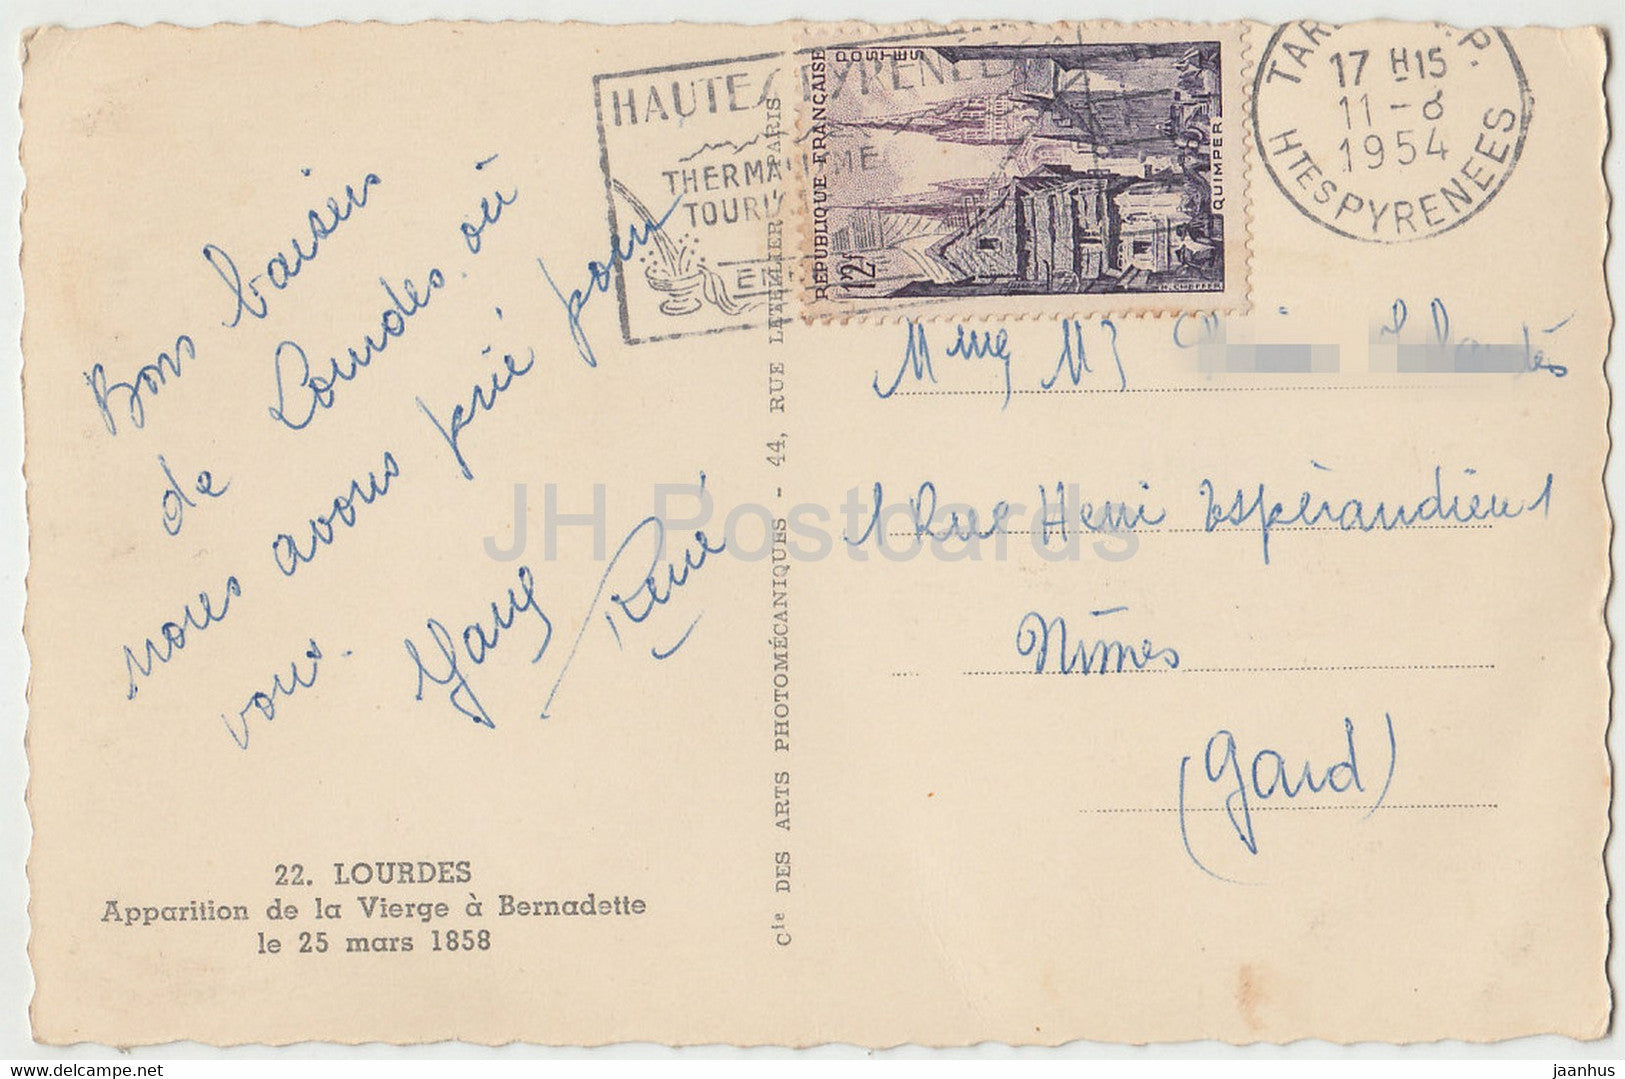 Bons baisers
de Lourdes. où
nous avons prié pour
vous.
René
22. LOURDES
Apparition de la Vierge à Bernadette
le 25 mars 1858
Cie DES ARTS PHOTOMÉCANIQUES - 44, RUE LETELLIER - PARIS
HAUTES PYRENEES
THERMALISME
TOURISME
RÉPUBLIQUE FRANÇAISE
POSTES
12F
QUIMPER
17 H15
11 - 8
1954
HTES PYRENEES
1 Rue Henri Espérandieu
Nîmes
(Gard)
JH Postcards
jaanhus
delcampe.net